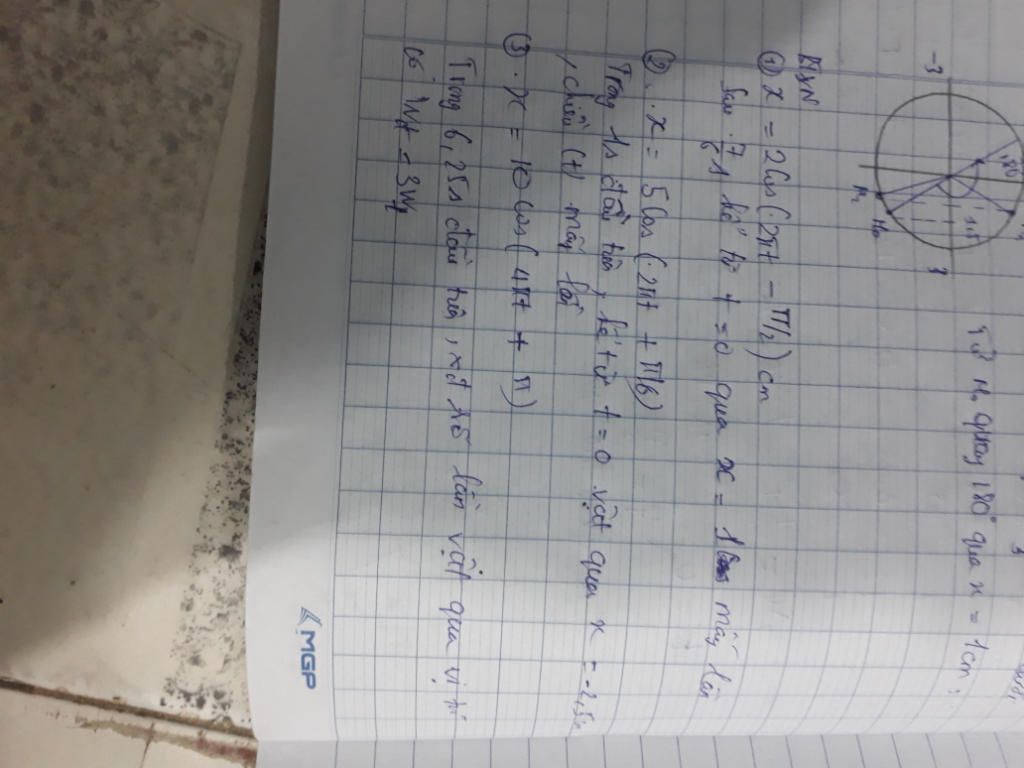 -3
3
Từ M₀ quay 180° qua x = 1cm:
BXN
① x = 2cos(2πt - π/2) cm
Sau 7/6 s kể từ t = 0 qua x = 1 mấy lần
② x = 5cos(2πt + π/6)
Trong 1s đầu tiên, kể từ t = 0 vật qua x = -2,5
, chiều (+) mấy lần
③ x = 10cos(4πt + π)
Trong 6,25s đầu tiên, xđ số lần vật qua vị trí
có Wđ = 3Wt
MGP